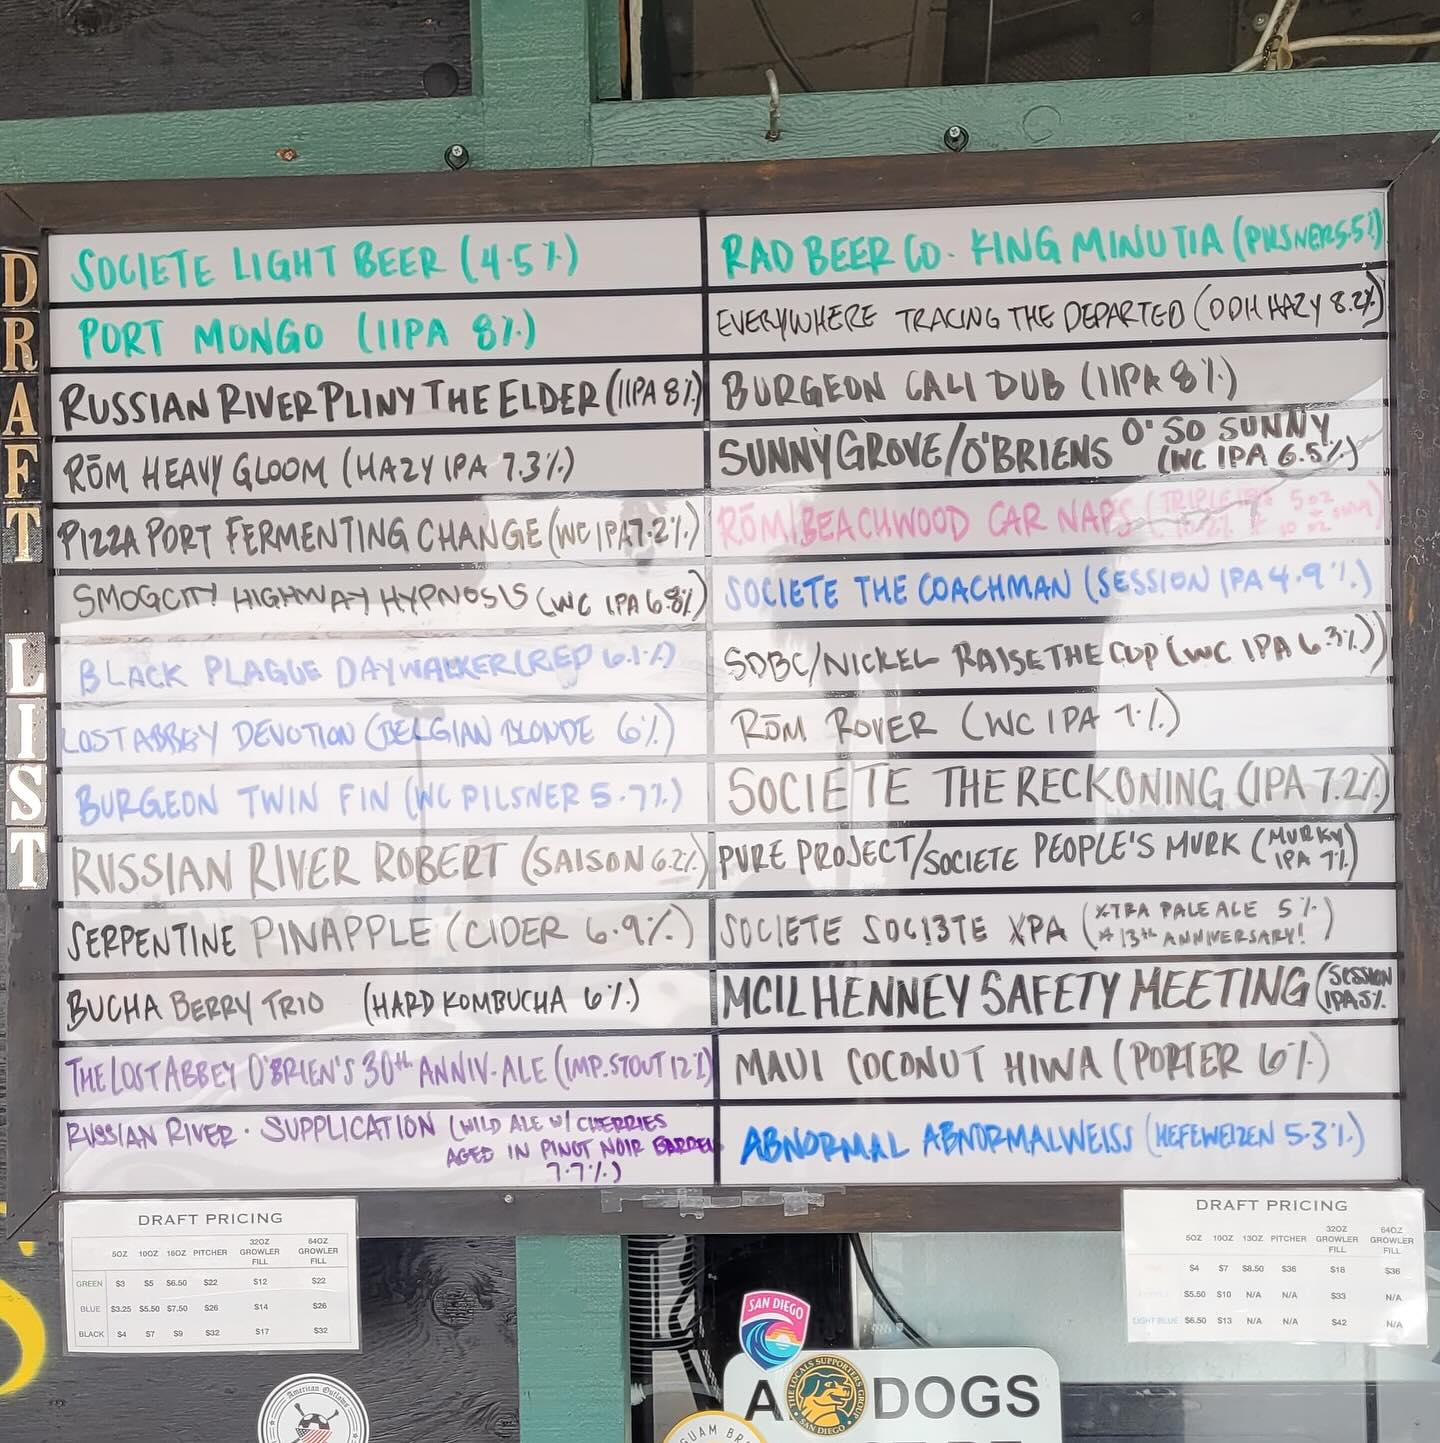 DRAFT LIST
SOCIETE LIGHT BEER (4.5%)
PORT MONGO (IIPA 8%)
RUSSIAN RIVER PLINY THE ELDER (IIPA 8%)
RŌM HEAVY GLOOM (HAZY IPA 7.3%)
PIZZA PORT FERMENTING CHANGE (WC IPA 7.2%)
SMOGCITY HIGHWAY HYPNOSIS (WC IPA 6.8%)
BLACK PLAGUE DAYWALKER (RED 6.1%)
LOST ABBEY DEVOTION (BELGIAN BLONDE 6%)
BURGEON TWIN FIN (WC PILSNER 5.7%)
RUSSIAN RIVER ROBERT (SAISON 6.2%)
SERPENTINE PINAPPLE (CIDER 6.9%)
BUCHA BERRY TRIO (HARD KOMBUCHA 6%)
THE LOST ABBEY O'BRIEN'S 30th ANNIV. ALE (IMP. STOUT 12%)
RUSSIAN RIVER · SUPPLICATION (WILD ALE W/ CHERRIES
AGED IN PINOT NOIR BARREL
7.7%)
RAD BEER CO. KING MINUTIA (PILSNER 5.5%)
EVERYWHERE TRACING THE DEPARTED (DDH HAZY 8.2%)
BURGEON CALI DUB (IIPA 8%)
SUNNYGROVE/O'BRIENS O' SO SUNNY
(WC IPA 6.5%)
RŌM/BEACHWOOD CAR NAPS (TRIPLE IPA 5 oz
10.2% + 10 oz only)
SOCIETE THE COACHMAN (SESSION IPA 4.9%)
SDBC/NICKEL RAISE THE CUP (WC IPA 6.3%)
RŌM ROVER (WC IPA 7%)
SOCIETE THE RECKONING (IPA 7.2%)
PURE PROJECT/SOCIETE PEOPLE'S MURK (MURKY
IPA 7%)
SOCIETE SOCI3TE XPA (XTRA PALE ALE 5%
* 13th ANNIVERSARY!)
MCILHENNEY SAFETY MEETING (SESSION
IPA 5%
MAUI COCONUT HIWA (PORTER 6%)
ABNORMAL ABNORMALWEISS (HEFEWEIZEN 5.3%)
DRAFT PRICING
5OZ 10OZ 16OZ PITCHER 32OZ GROWLER FILL 64OZ GROWLER FILL
GREEN $3 $5 $6.50 $22 $12 $22
BLUE $3.25 $5.50 $7.50 $26 $14 $26
BLACK $4 $7 $9 $32 $17 $32
DRAFT PRICING
5OZ 10OZ 13OZ PITCHER 32OZ GROWLER FILL 64OZ GROWLER FILL
$4 $7 $8.50 $36 $18 $36
$5.50 $10 N/A N/A $33 N/A
LIGHT BLUE $6.50 $13 N/A N/A $42 N/A
SAN DIEGO
THE LOCALS SUPPORTERS GROUP
SAN DIEGO
DOGS
American Outlaws
GUAM BR